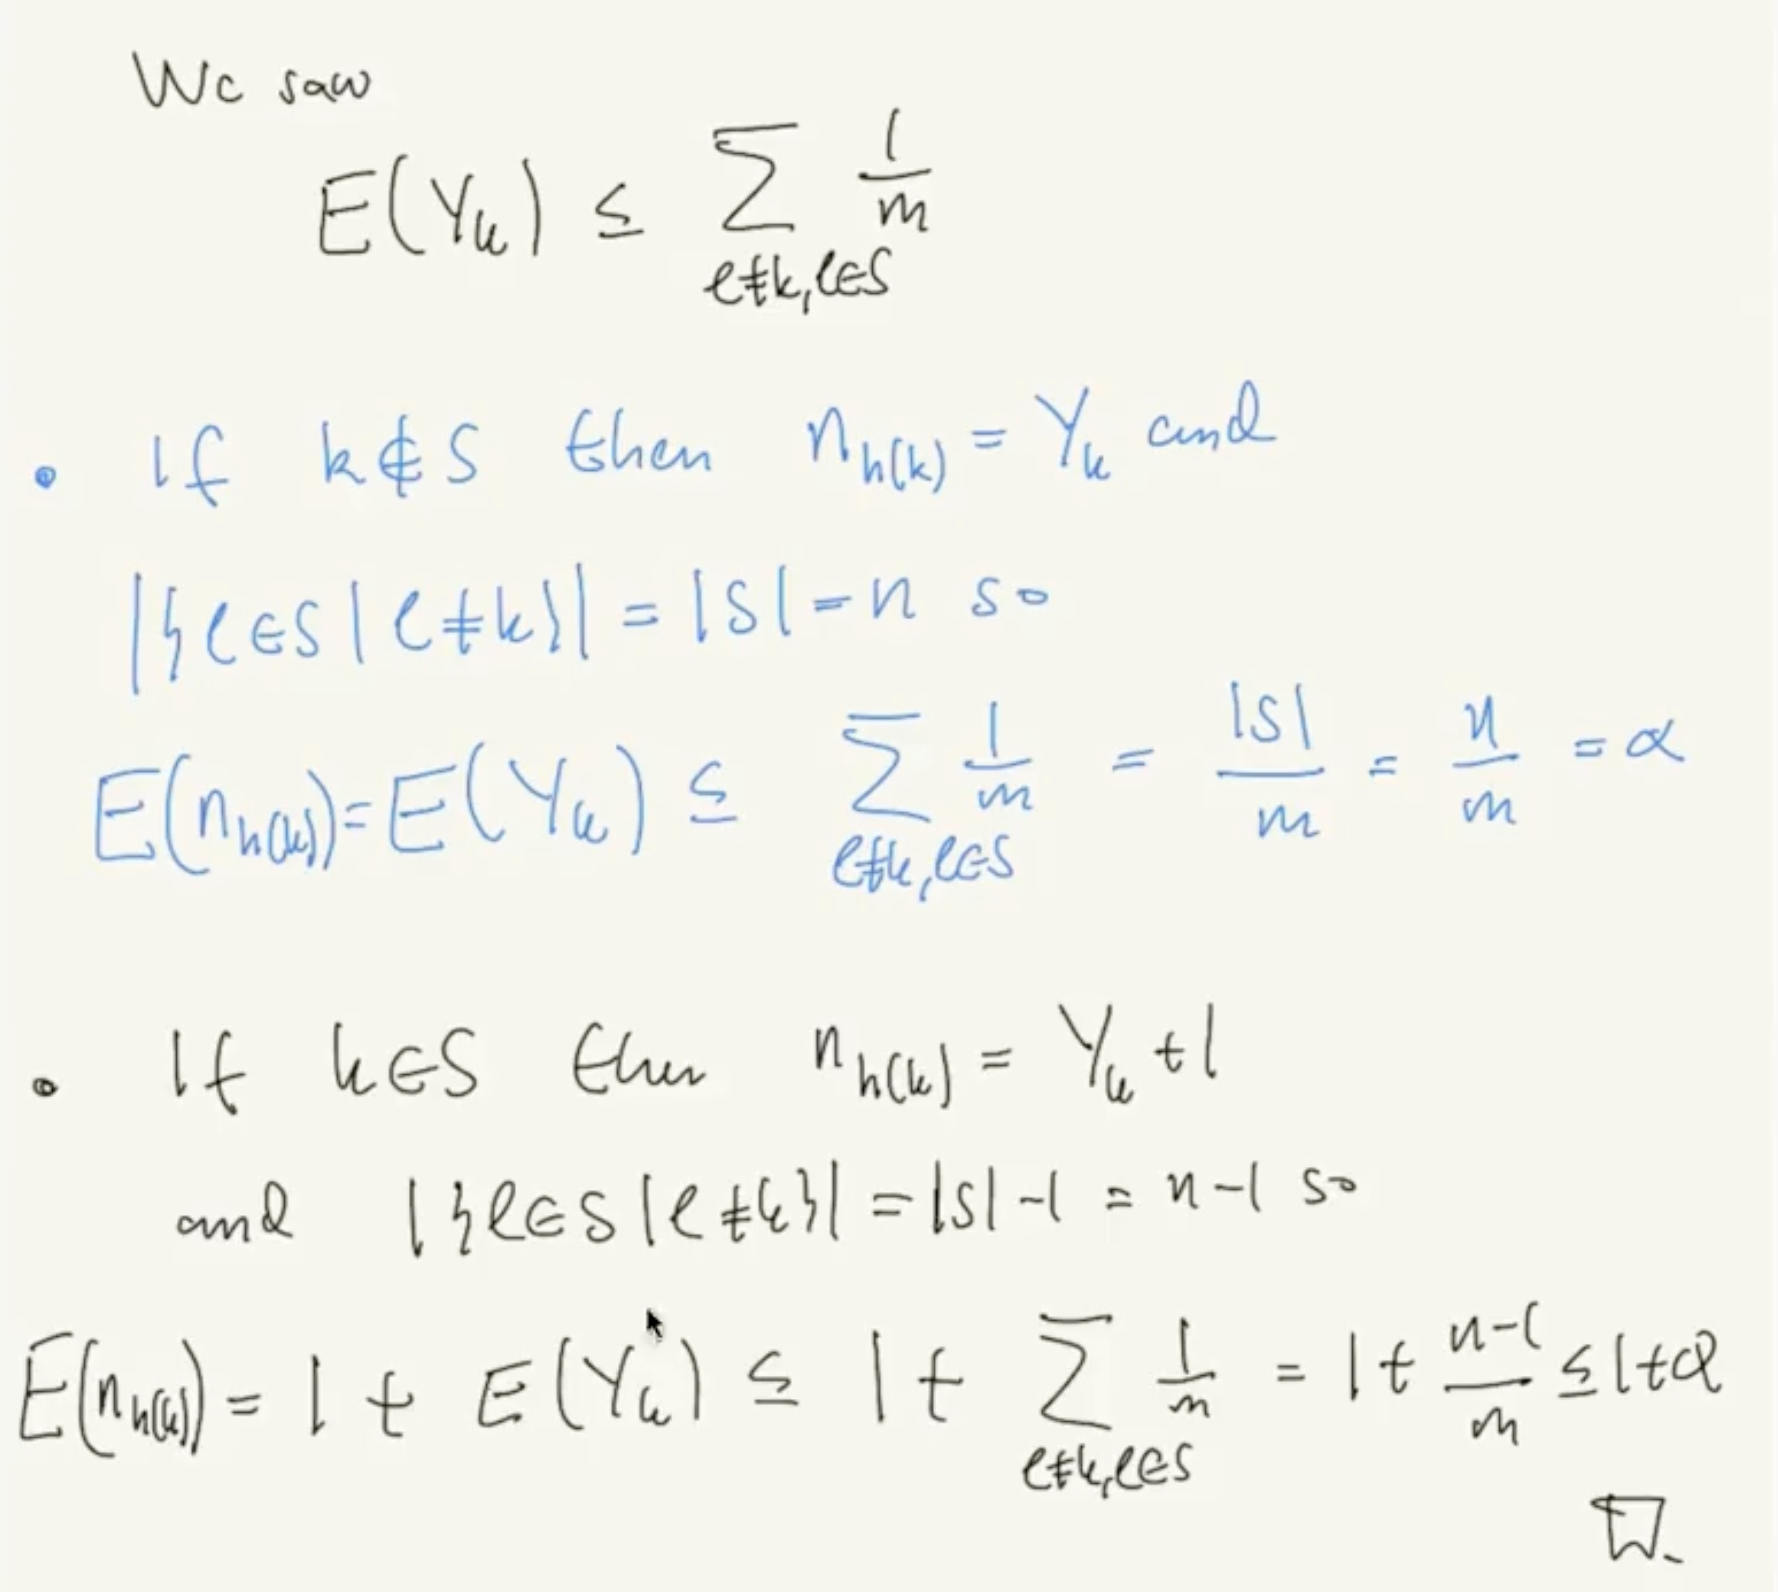 We saw
E(Yₖ) ≤ Σ_{ℓ≠k, ℓ∈S} 1/m
• If k∉S then n_{h(k)} = Yₖ and
|{ℓ∈S | ℓ≠k}| = |S| = n so
E(n_{h(k)}) = E(Yₖ) ≤ Σ_{ℓ≠k, ℓ∈S} 1/m = |S|/m = n/m = α
• If k∈S then n_{h(k)} = Yₖ + 1
and |{ℓ∈S | ℓ≠k}| = |S| - 1 = n - 1 so
E(n_{h(k)}) = 1 + E(Yₖ) ≤ 1 + Σ_{ℓ≠k, ℓ∈S} 1/m = 1 + (n-1)/m ≤ 1 + α
□.